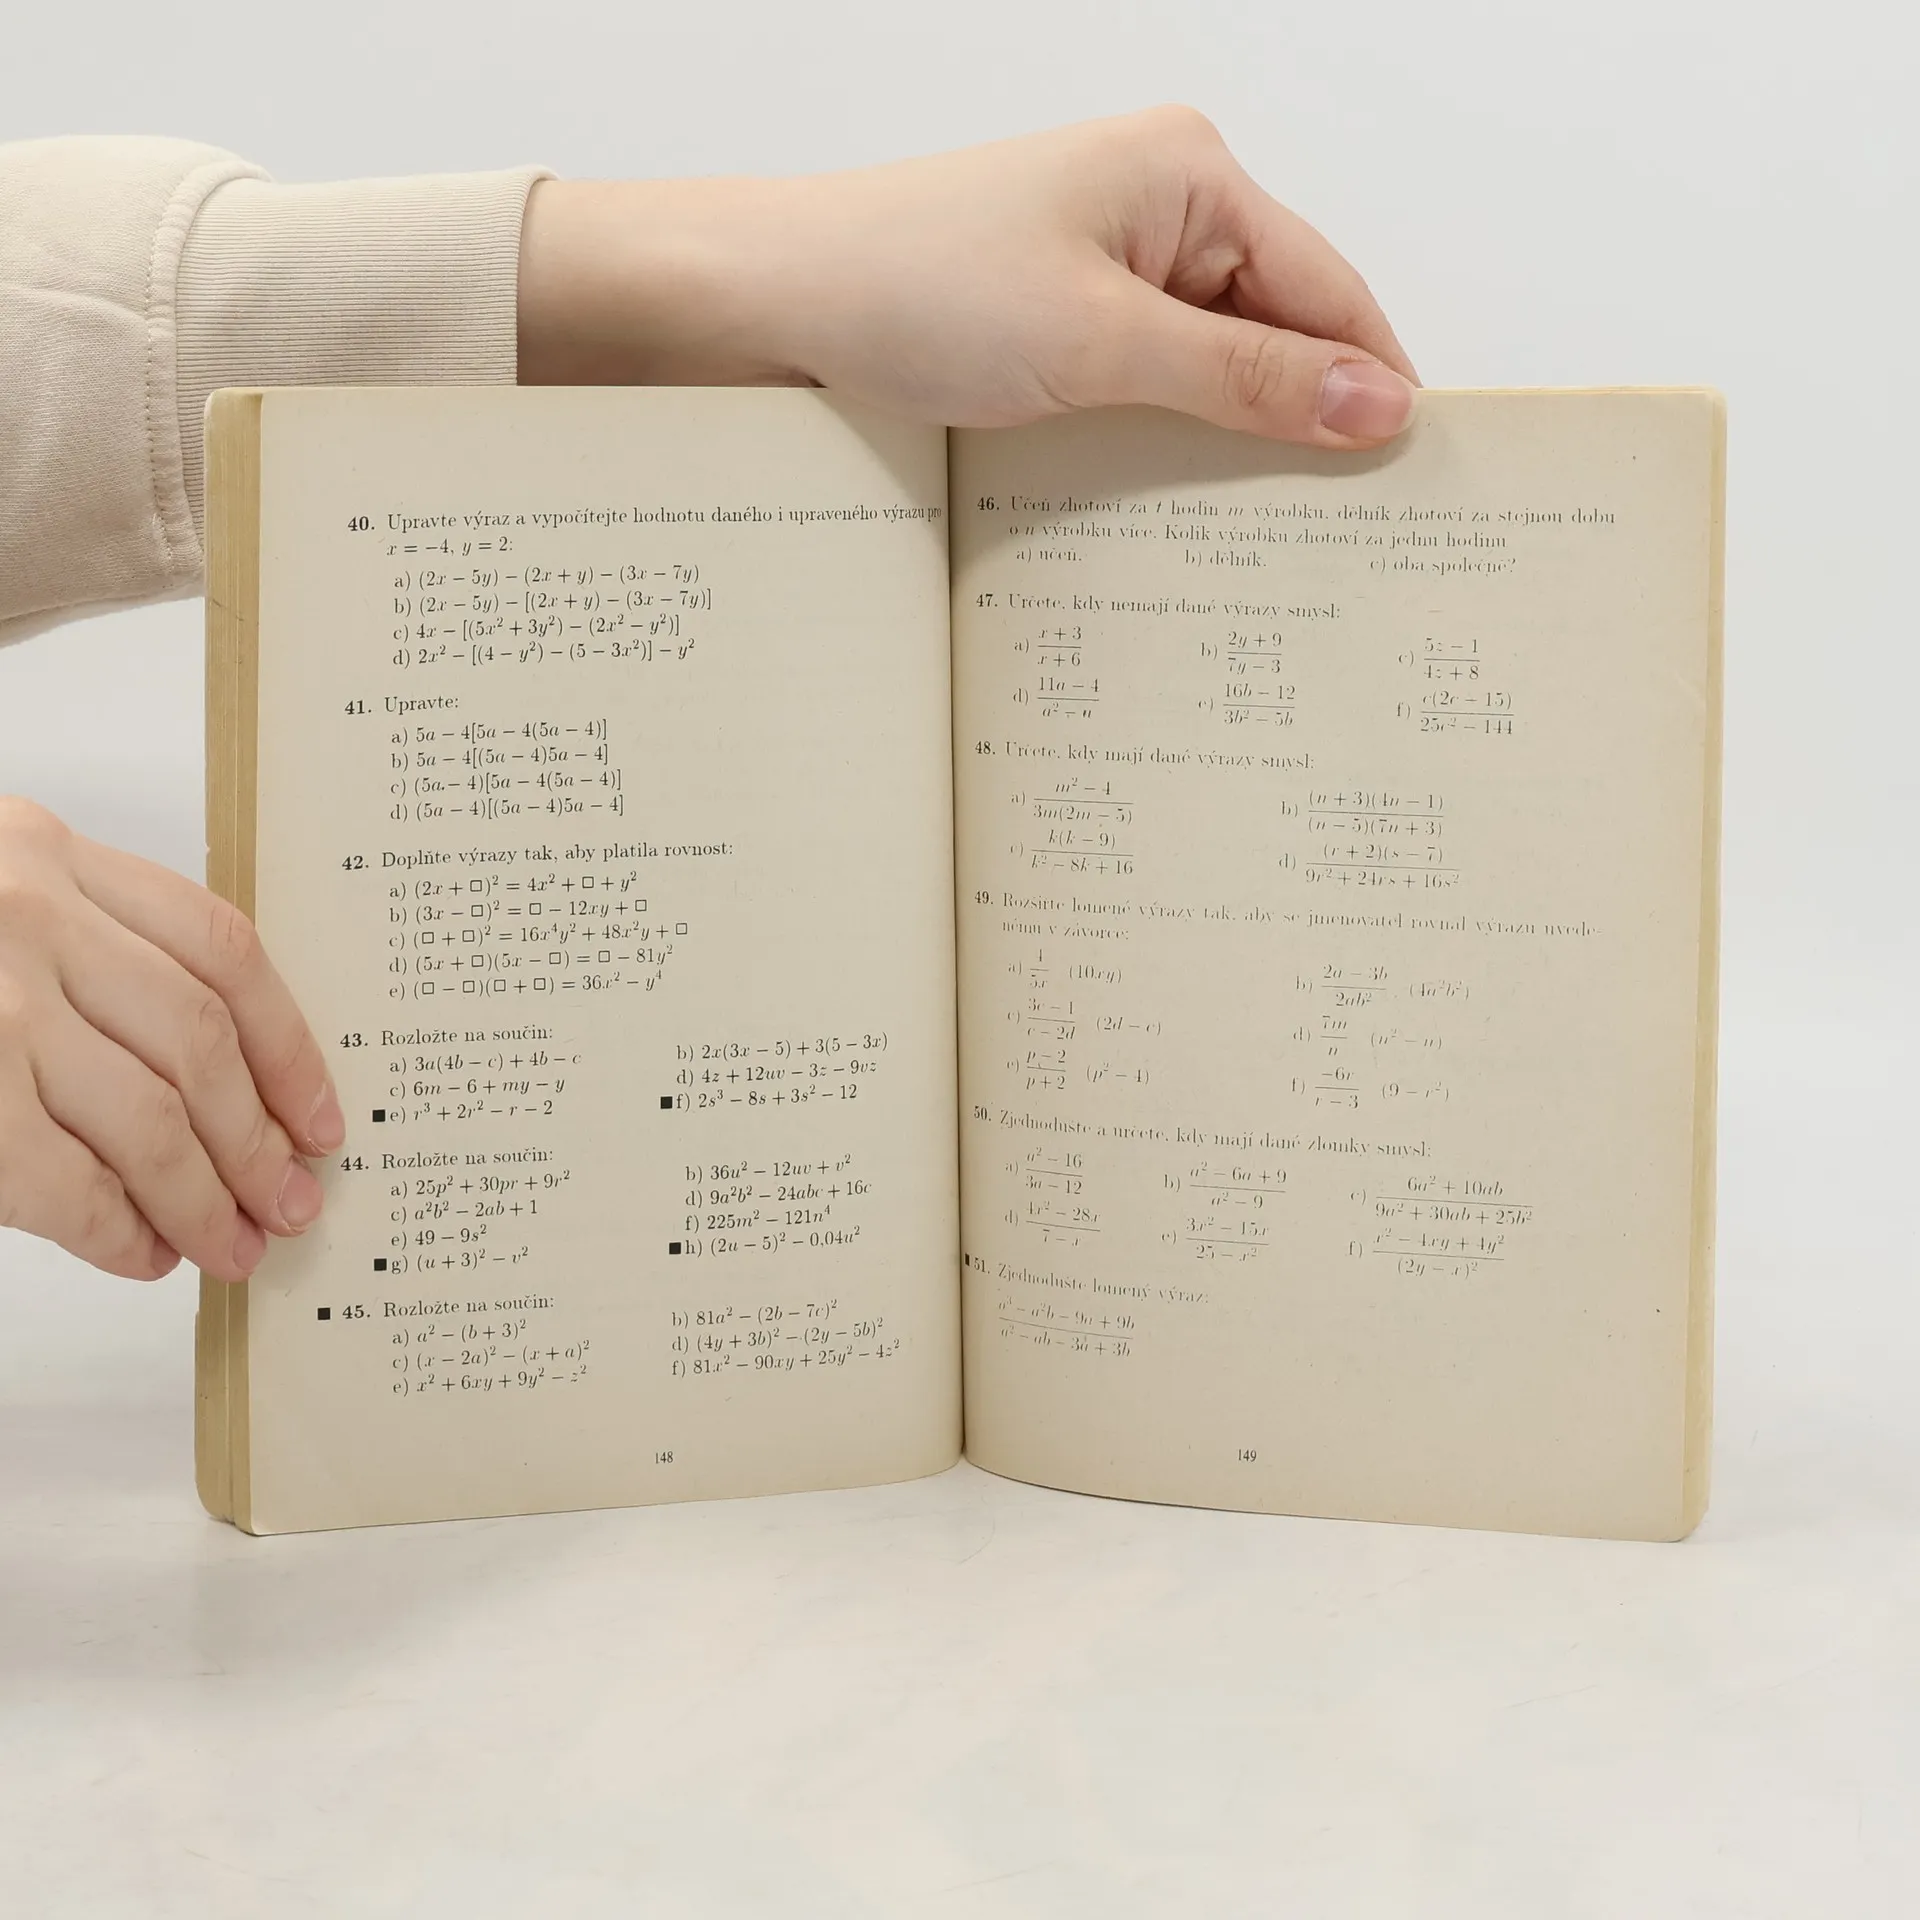 40. Upravte výraz a vypočítejte hodnotu daného i upraveného výrazu pro
x = −4, y = 2:
a) (2x − 5y) − (2x + y) − (3x − 7y)
b) (2x − 5y) − [(2x + y) − (3x − 7y)]
c) 4x − [(5x² + 3y²) − (2x² − y²)]
d) 2x² − [(4 − y²) − (5 − 3x²)] − y²
41. Upravte:
a) 5a − 4[5a − 4(5a − 4)]
b) 5a − 4[(5a − 4)5a − 4]
c) (5a − 4)[5a − 4(5a − 4)]
d) (5a − 4)[(5a − 4)5a − 4]
42. Doplňte výrazy tak, aby platila rovnost:
a) (2x + □)² = 4x² + □ + y²
b) (3x − □)² = □ − 12xy + □
c) (□ + □)² = 16x⁴y² + 48x²y + □
d) (5x + □)(5x − □) = □ − 81y²
e) (□ − □)(□ + □) = 36x² − y⁴
43. Rozložte na součin:
a) 3a(4b − c) + 4b − c b) 2x(3x − 5) + 3(5 − 3x)
c) 6m − 6 + my − y d) 4z + 12uv − 3z − 9vz
■ e) r³ + 2r² − r − 2 ■ f) 2s³ − 8s + 3s² − 12
44. Rozložte na součin:
a) 25p² + 30pr + 9r² b) 36u² − 12uv + v²
c) a²b² − 2ab + 1 d) 9a²b² − 24abc + 16c
e) 49 − 9s² f) 225m² − 121n⁴
■ g) (u + 3)² − v² ■ h) (2u − 5)² − 0,04u²
■ 45. Rozložte na součin:
a) a² − (b + 3)² b) 81a² − (2b − 7c)²
c) (x − 2a)² − (x + a)² d) (4y + 3b)² − (2y − 5b)²
e) x² + 6xy + 9y² − z² f) 81x² − 90xy + 25y² − 4z²
148
46. Učeň zhotoví za t hodin m výrobku, dělník zhotoví za stejnou dobu
o n výrobku více. Kolik výrobku zhotoví za jednu hodinu
a) učeň, b) dělník, c) oba společně?
47. Určete, kdy nemají dané výrazy smysl:
a) (x + 3)/(x + 6) b) (2y + 9)/(7y − 3) c) (5z − 1)/(4z + 8)
d) (11a − 4)/(a² − a) e) (16b − 12)/(3b² − 5b) f) c(2c − 15)/(25c² − 144)
48. Určete, kdy mají dané výrazy smysl:
a) (m² − 4)/(3m(2m − 5)) b) (n + 3)(4n − 1)/((n − 5)(7n + 3))
c) k(k − 9)/(k² − 8k + 16) d) (r + 2)(s − 7)/(9r² + 24rs + 16s²)
49. Rozšiřte lomené výrazy tak, aby se jmenovatel rovnal výrazu uvede-
nému v závorce:
a) 4/5x (10xy) b) (2a − 3b)/2ab² (4a²b²)
c) (3c − 1)/(c − 2d) (2d − c) d) 7m/n (n² − n)
e) (p − 2)/(p + 2) (p² − 4) f) −6r/(r − 3) (9 − r²)
50. Zjednodušte a určete, kdy mají dané zlomky smysl:
a) (a² − 16)/(3a − 12) b) (a² − 6a + 9)/(a² − 9) c) (6a² + 10ab)/(9a² + 30ab + 25b²)
d) (4x² − 28x)/(7 − x) e) (3x² − 15x)/(25 − x²) f) (x² − 4xy + 4y²)/(2y − x)²
■ 51. Zjednodušte lomený výraz:
(a³ − a²b − 9a + 9b)/(a² − ab − 3a + 3b)
149